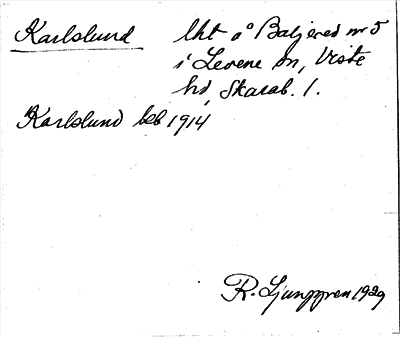 Karlslund lht å Baljered nr 5
i Levene sn, Viste
hd, Skarab. l.
Karlslund beb 1914
R. Ljunggren 1929